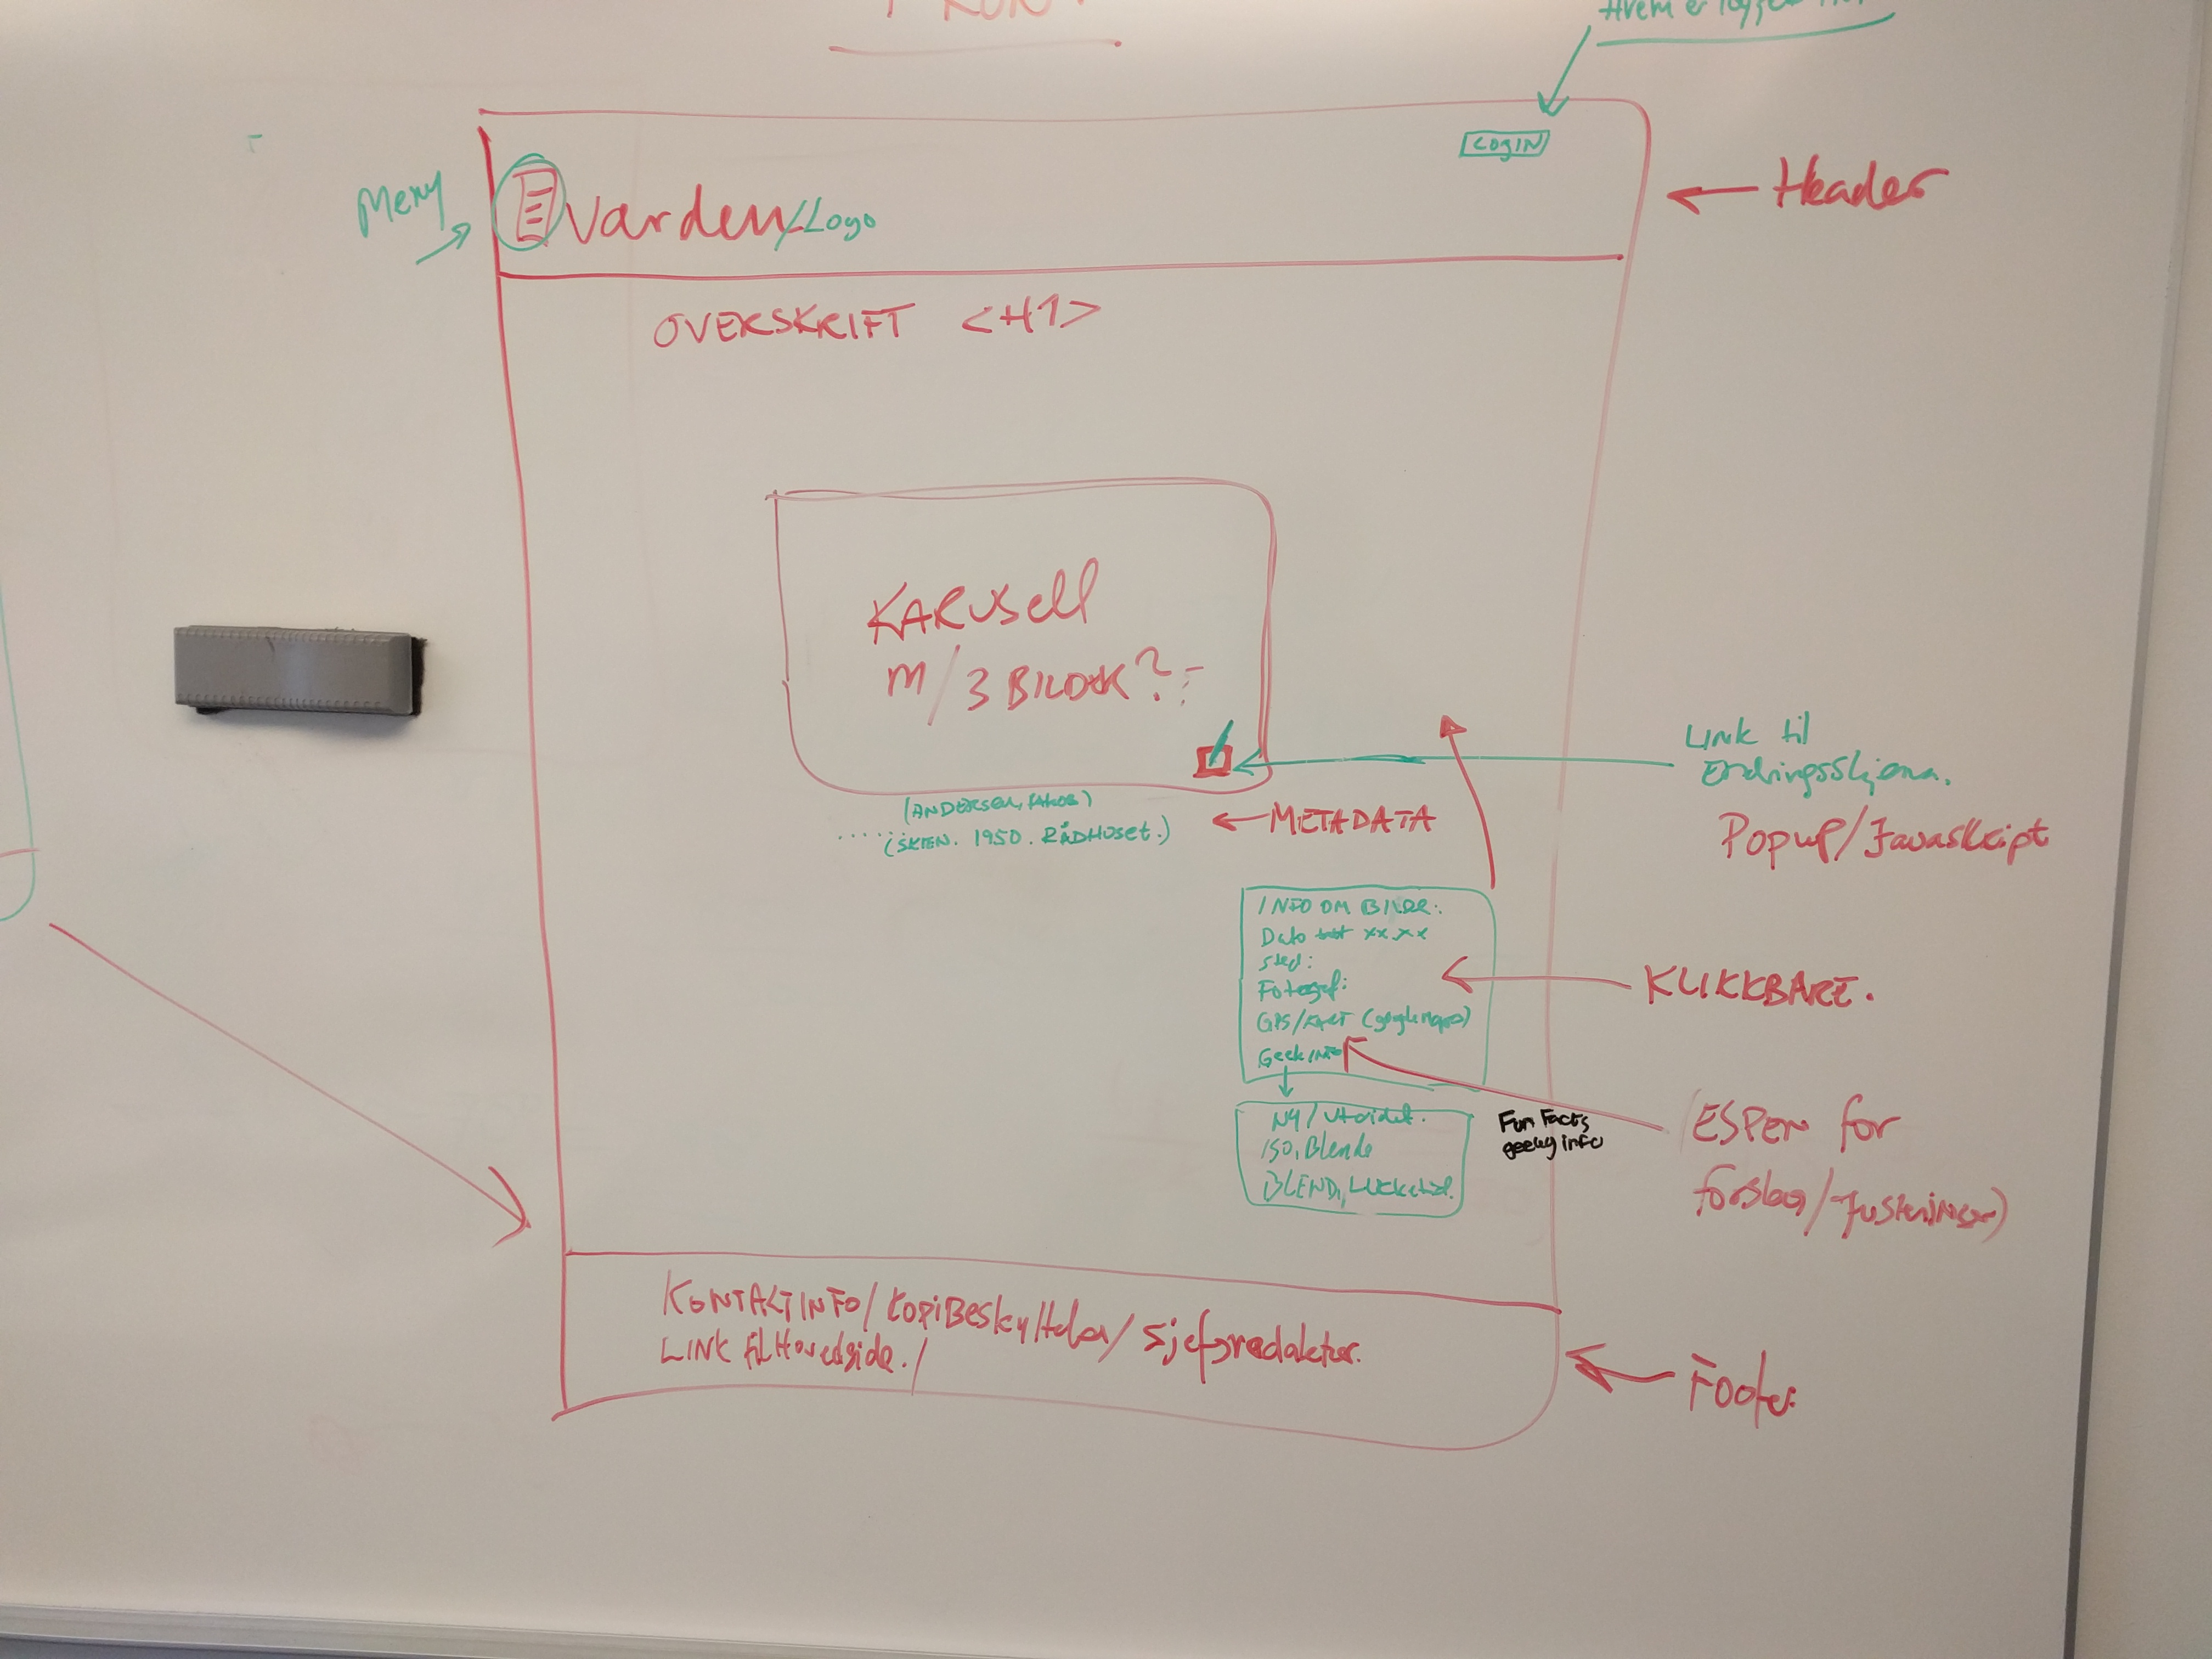 Hvem er logget
LOGIN
Header
Meny
Varden/Logo
OVERSKRIFT <H1>
KARUSell
M/3 BILDER?
Link til
Endringsskjema.
Popup/Javaskript
(ANDERSEN, JAKOB)
(SKIEN. 1950. RÅDHUSET.)
METADATA
INFO OM BILDE:
Dato xx.xx
sted:
Fotograf:
GPS/KART (googlemaps)
Geek INFO
KLIKKBARE.
NY/Utvidet.
ISO, Blende
BLEND, Lukketid.
Fun Facts
geeky info
(ESPEN for
forslag/Justeringer)
KONTAKTINFO/KopiBeskyttelse/Sjefsredaktør.
LINK til Hovedside./
Footer